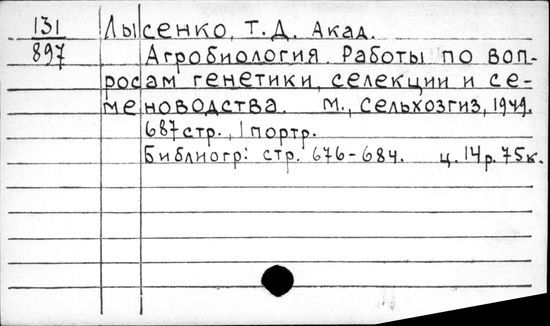 131 Лысенко, Т.Д. Акад.
897 Агробиология. Работы по воп-
росам генетики, селекции и се-
меноводства. М., Сельхозгиз, 1949.
687 стр., 1 портр.
Библиогр: стр. 676-684. ц. 14р. 75к.